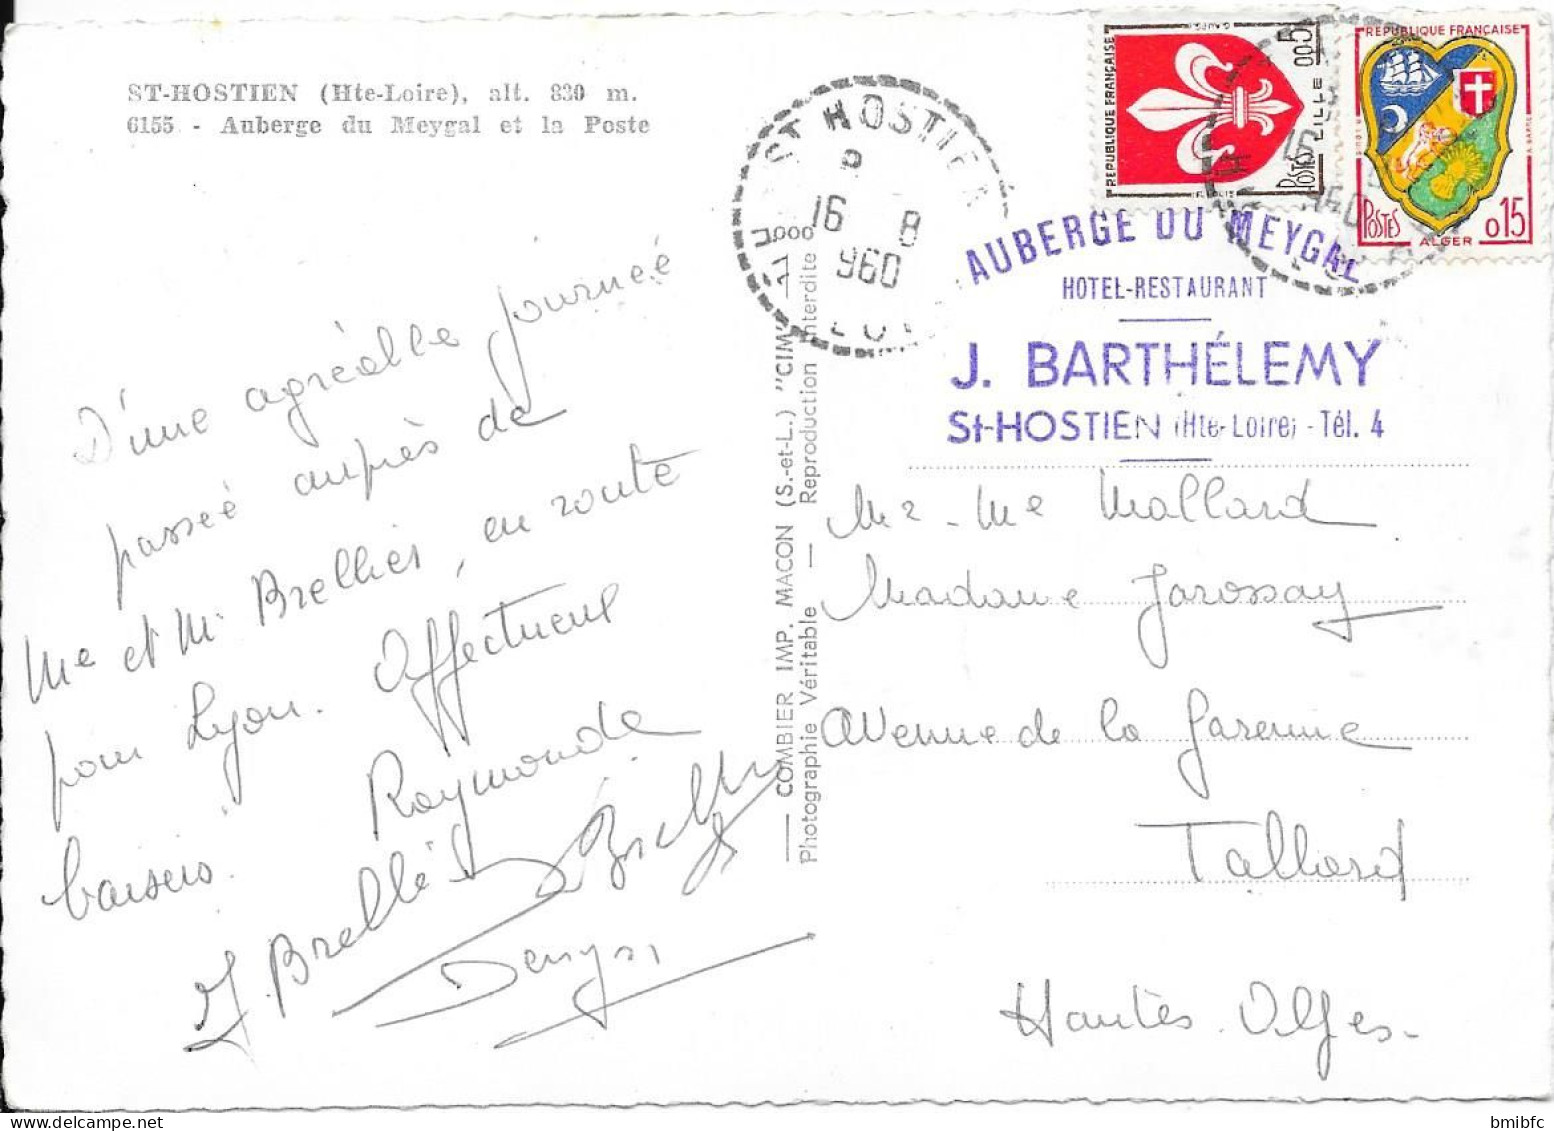 ST-HOSTIEN (Hte-Loire), alt. 830 m.
6155 - Auberge du Meygal et la Poste
D'une agréable journéé
passéé auprès de
Me et Mr Brellier, en route
pour Lyon. Affectueux
baisers. Raymonde
J. Brellié
Denys
COMBIER IMP. MACON (S.-et-L.) "CIM"
Photographie Véritable — Reproduction interdite
ST HOSTIEN
16 8
960
REPUBLIQUE FRANÇAISE
POSTES LILLE 0,05
REPUBLIQUE FRANÇAISE
POSTES ALGER 0,15
AUBERGE DU MEYGAL
HOTEL-RESTAURANT
J. BARTHÉLEMY
St-HOSTIEN (Hte-Loire) - Tél. 4
Mr - Me Mallard
Madame Jarossay
Avenue de la Garenne
Tallard
Hautes-Alpes-
bmibfc